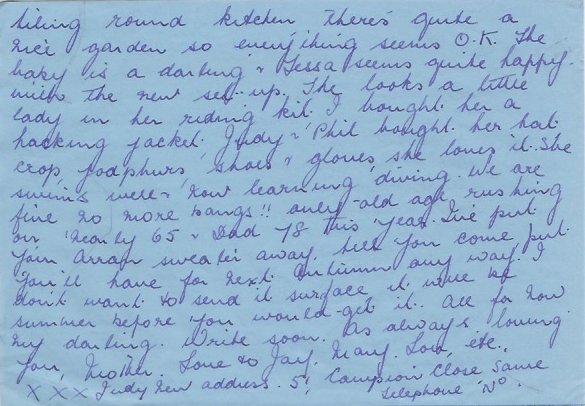 tiling round kitchen there's quite a
nice garden so everything seems O.K. The
baby is a darling & Tessa seems quite happy
with the new set-up. She looks a little
lady in her riding kit. I bought her a
hacking jacket. Judy & Phil bought her hat
crop jodphurs, shoes & gloves she loves it. She
swims well & now learning diving. We are
fine no more bangs!! only old age rushing
on, nearly 65 & Dad 78 this year. I've put
your Arran sweater away, till you come, but
you'll have for next Autumn any way. I
don't want to send it surface it wld be
summer before you would get it. All for now
my darling. Write soon. As always loving
you, Mother. Love to Jay, Mary, Lou, etc.
XXX Judy new address. 5, Campion Close same
telephone No.